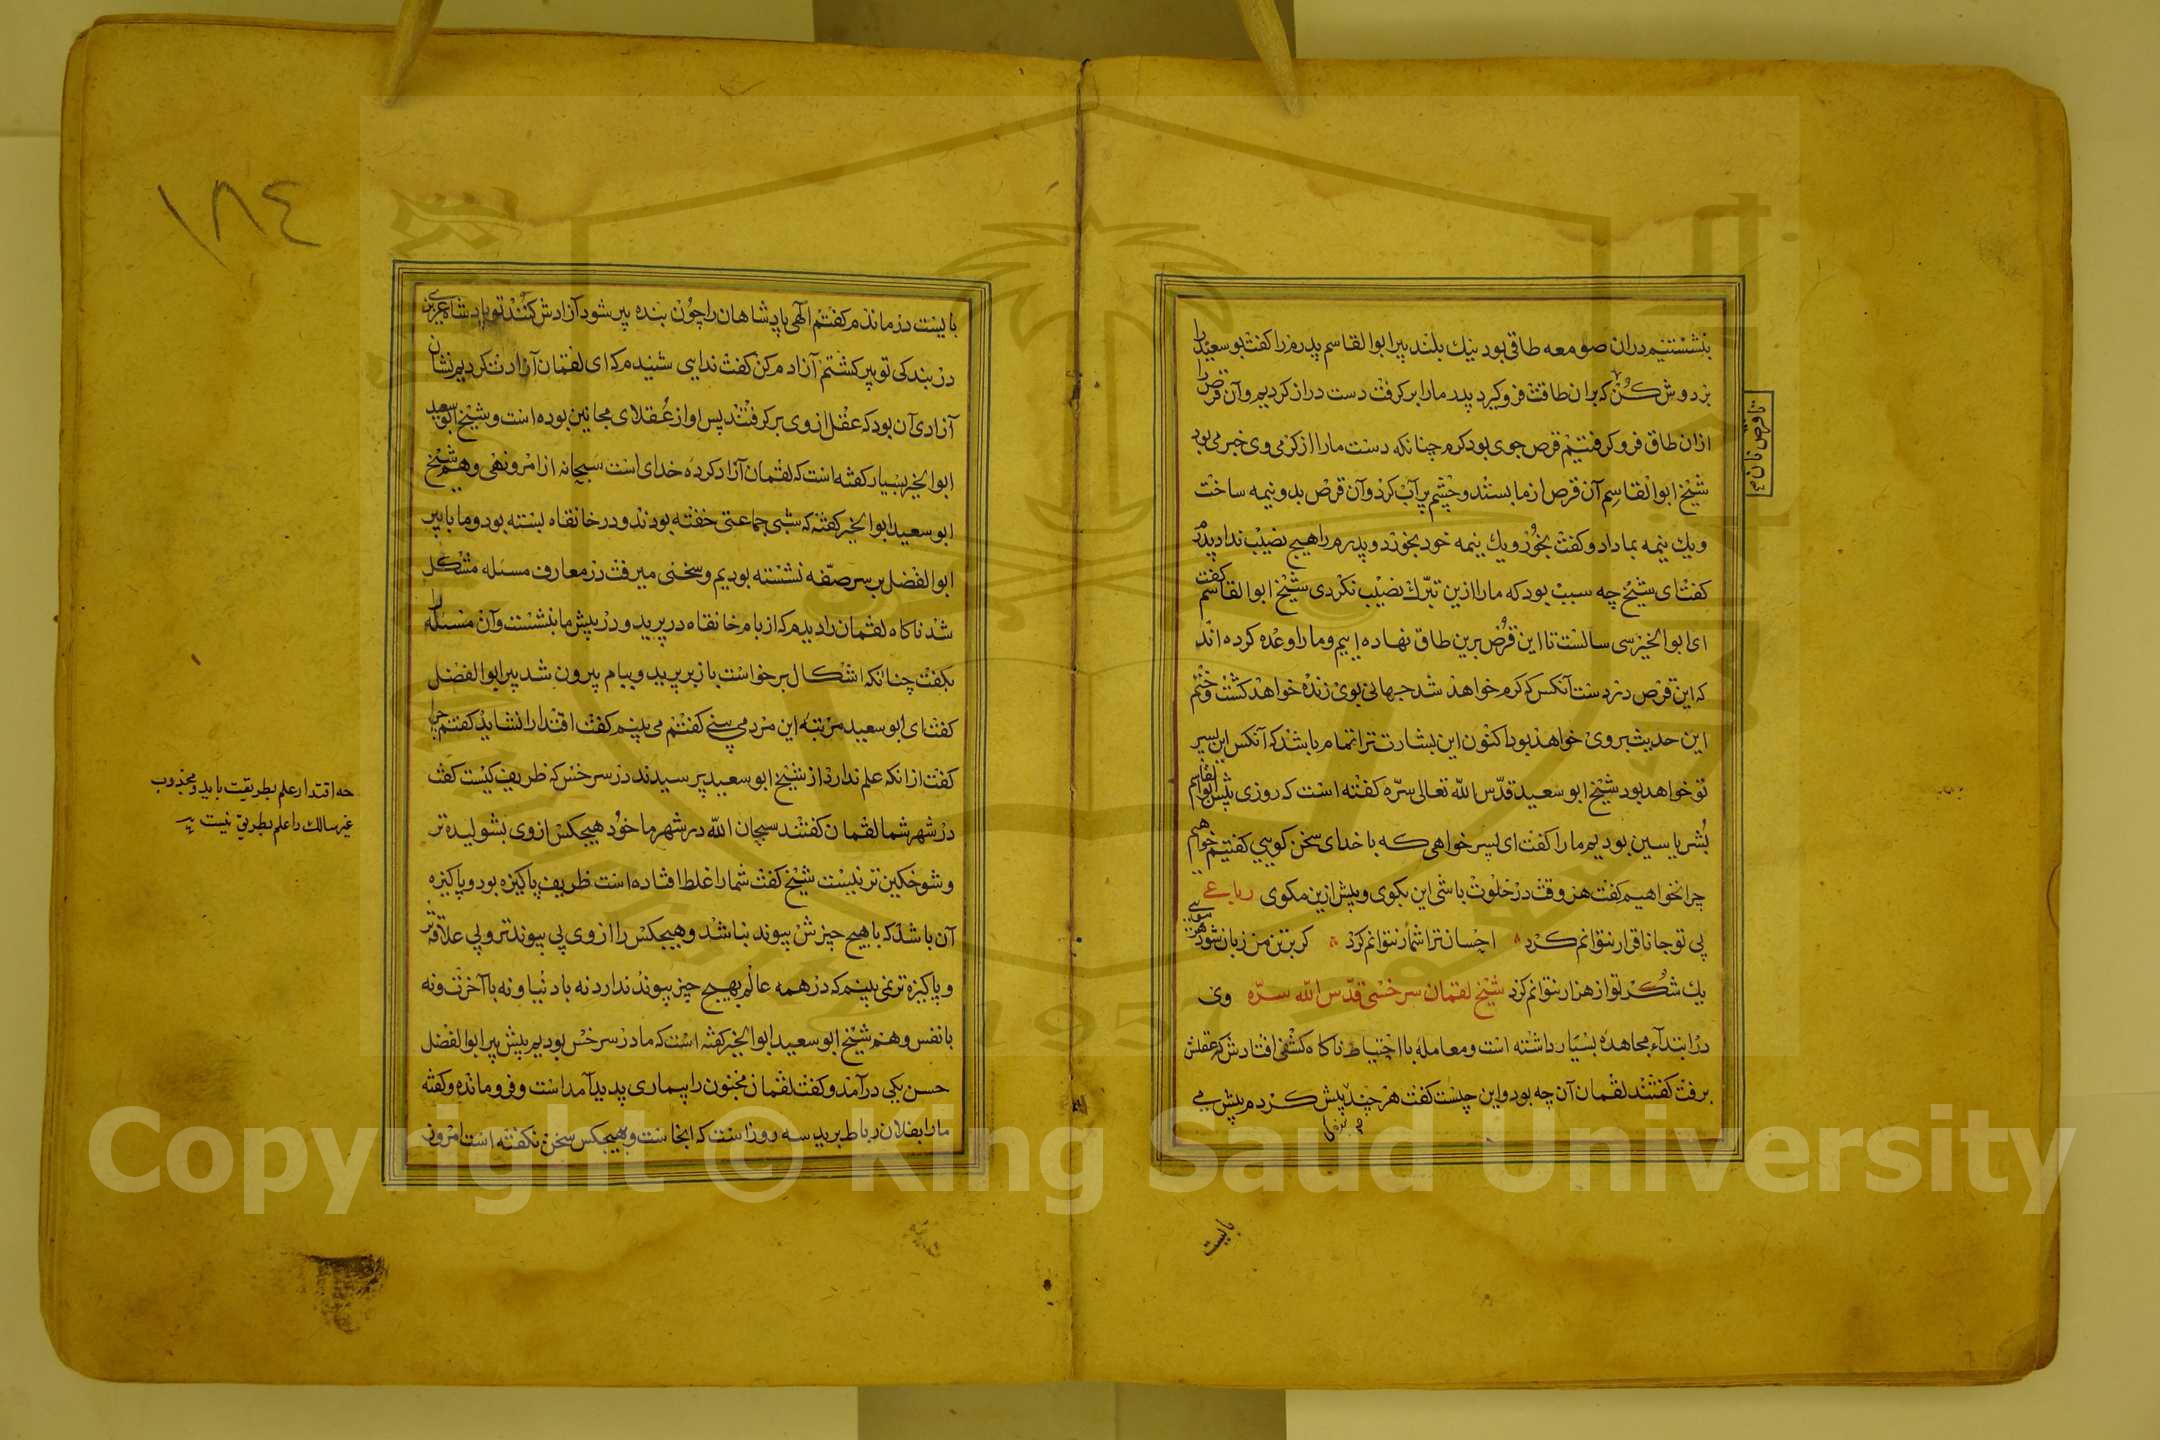 بنشستیم دران صومعه طاقی بود نیك بلند پیر ابوالقاسم پدرم را كفت بوسعید را
بر دوش كن كه بران طاقت فرو كیرد پدر مارا بر كرفت دست دراز كردیم وآن قرص را
تا قرص نان
ازان طاق فرو كرفتیم قرص جوی بود كرم چنانكه دست مارا از كرمی وی خبر می بود
شیخ ابوالقاسم آن قرص از ما بستد و چشم پر آب كرد وآن قرص بدو نیمه ساخت
ویك نیمه بما داد و كفت بخور ویك نیمه خود بخورد و پدرم را هیچ نصیب نداد پدرم
كفت ای شیخ چه سبب بود كه مارا ازین تبرّك نصیب نكردی شیخ ابوالقاسم كفت
ای ابوالخیر سی سالست تا این قرص برین طاق نهاده ایم و مارا وعده كرده اند
كه این قرص در دست آنكس كه كرم خواهد شد جهانی بوی زنده خواهد كشت و ختم
این حدیث بروی خواهد بود اكنون این بشارت ترا تمام باشد كه آنكس این پسر
تو خواهد بود شیخ ابو سعید قدّس اللّه تعالی سرّه كفته است كه روزی پیش ابوالقاسم
بُشر یاسین بودیم مارا كفت ای پسر خواهی كه با خدای سخن كویی كفتیم خواهیم
چرا نخواهیم كفت هر وقت در خلوت باشی این بكوی و بیش ازین مكوی رباعی
بی تو جانا قرار نتوانم كرد احسان ترا شمار نتوانم كرد كر بر تن من زبان شود هر مویی
یك شكر تو از هزار نتوانم كرد شیخ لقمان سرخسی قدّس اللّه سرّه وی
در ابتداء مجاهده بسیار داشته است و معامله با احتیاط ناكاه كشفی افتادش كه عقلش
برفت كفتند لقمان آن چه بود و این چیست كفت هر چند بیش كردم بیش می
بایست
١٨٤
بایست درماندم كفتم الٓهی پادشاهان را چون بنده پیر شود آزادش كنند تو پادشاه عزیزی
در بندكی تو پیر كشتم آزادم كن كفت ندایی شنیدم كه ای لقمان آزادت كردیم نشان
آزادی آن بود كه عقل از وی بر كرفتند پس او از عُقلای مجانین بوده است و شیخ ابو سعید
ابوالخیر بسیار كفته است كه لقمان آزاد كرده خدای است سبحانه از امر و نهی و هم شیخ
ابو سعید ابوالخیر كفته كه شبی جماعتی خفته بودند و در خانقاه بسته بود و ما با پیر
ابوالفضل بر سر صفّه نشسته بودیم و سخنی میرفت در معارف مسئله مشكل
شد ناكاه لقمان را دیدم كه از بام خانقاه در پرید و در پیش ما بنشست وآن مسئله را
بكفت چنانكه اشكال برخواست باز بر پرید و ببام بیرون شد پیر ابوالفضل
كفت ای ابو سعید مرتبهٔ این مرد می بینی كفتم می بینم كفت اقتدا را نشاید كفتم چرا
كفت ازانكه علم ندارد از شیخ ابو سعید پرسیدند در سرخس كه ظریف كیست كفت
در شهر شما لقمان كفتند سبحان اللّه در شهر ما خود هیچكس از وی بشولیده تر
و شوخكین تر نیست شیخ كفت شما را غلط افتاده است ظریف پاكیزه بود و پاكیزه
آن باشد كه با هیچ چیزش پیوند نباشد و هیچكس را از وی بی پیوند تر و بی علاقه تر
و پاكیزه تر نمی بینم كه در همه عالم بهیچ چیز پیوند ندارد نه با دنیا و نه با آخرت و نه
با نفس و هم شیخ ابو سعید ابوالخیر كفته است كه ما در سرخس بودیم پیش پیر ابوالفضل
حسن یكی در آمد و كفت لقمان مجنون را بیماری پدید آمداست و فرومانده و كفته
مارا بفلان رباط برید سه روزاست كه انجاست و بهیچكس سخن نكفته است امروز
چه اقتدا را علم بطریقت باید و مجذوب
غیر سالك را علم بطریق نیست
Copyright © King Saud University
1957